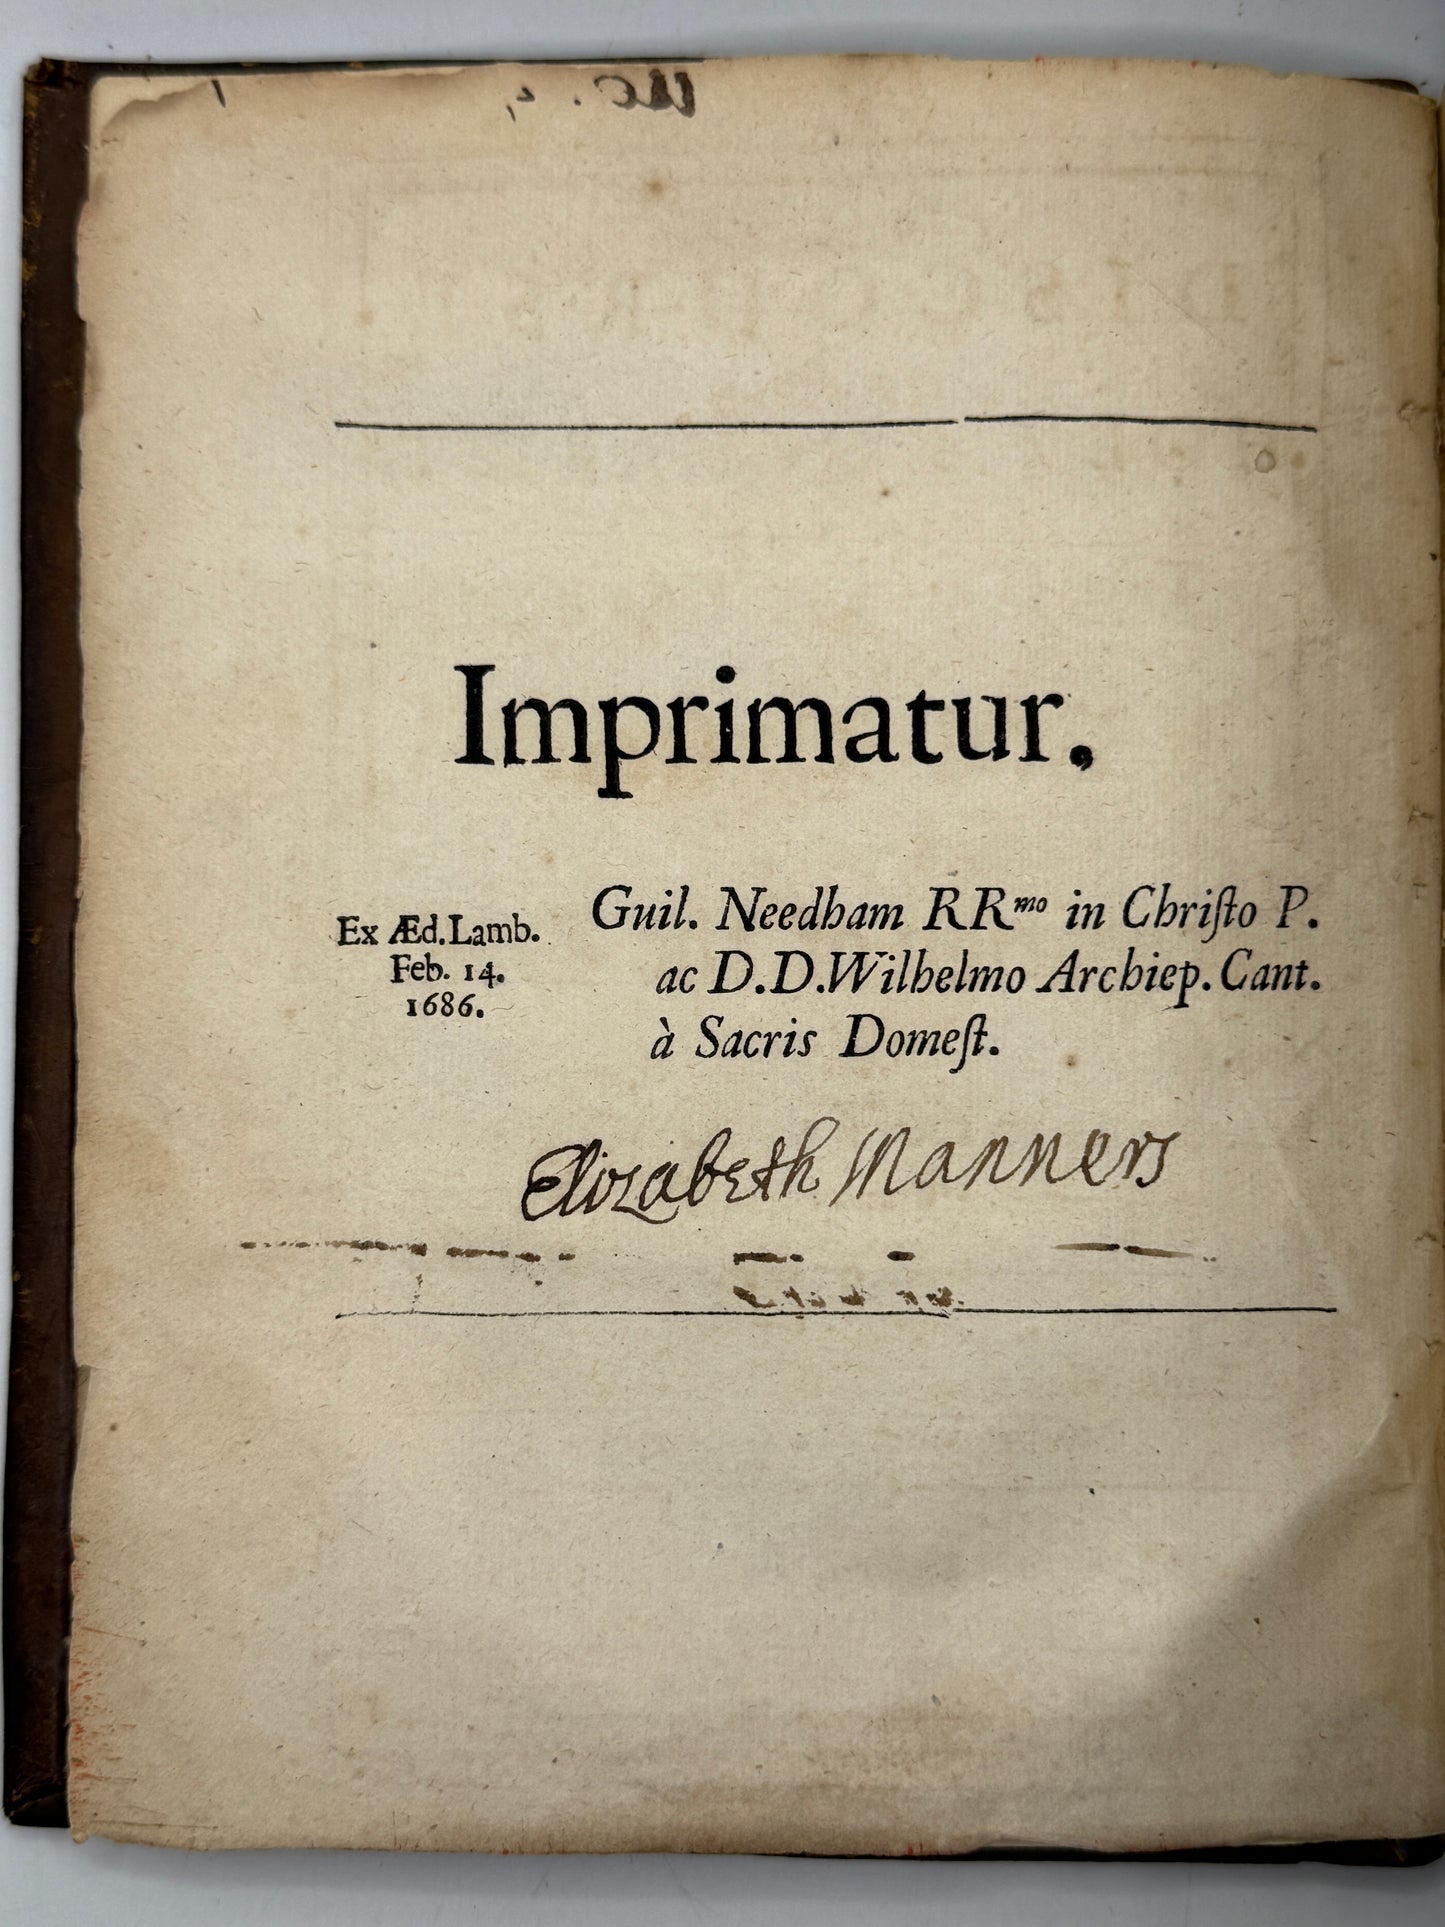 Imprimatur.
Guil. Needham RRmo in Chriſto P.
ac D.D. Wilhelmo Archiep. Cant.
à Sacris Domeſt.
Ex Æd. Lamb.
Feb. 14.
1686.
Elizabeth Manners